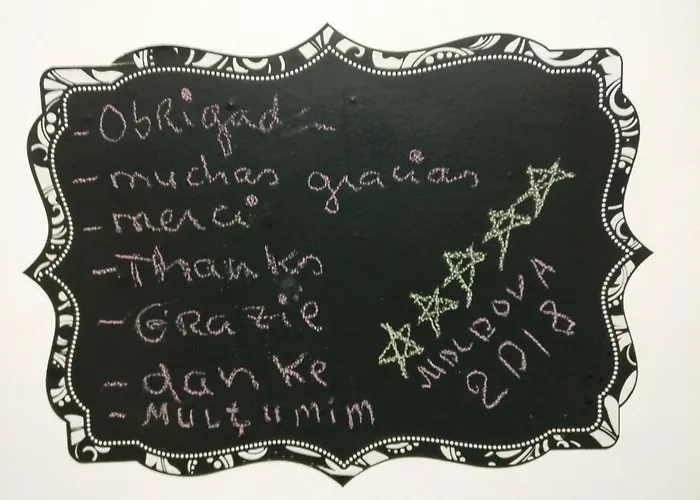 - ObRigada
- muchas gracias
- merci
- Thanks
- GRazie
- danke
- MULŢUMIM
MOLDOVA
2018